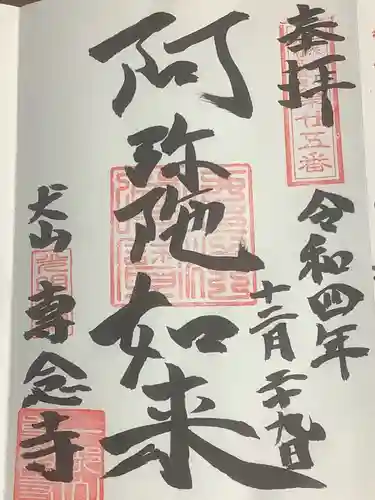 奉拝
令和四年
十二月二十九日
阿弥陀如来
犬山
専念寺